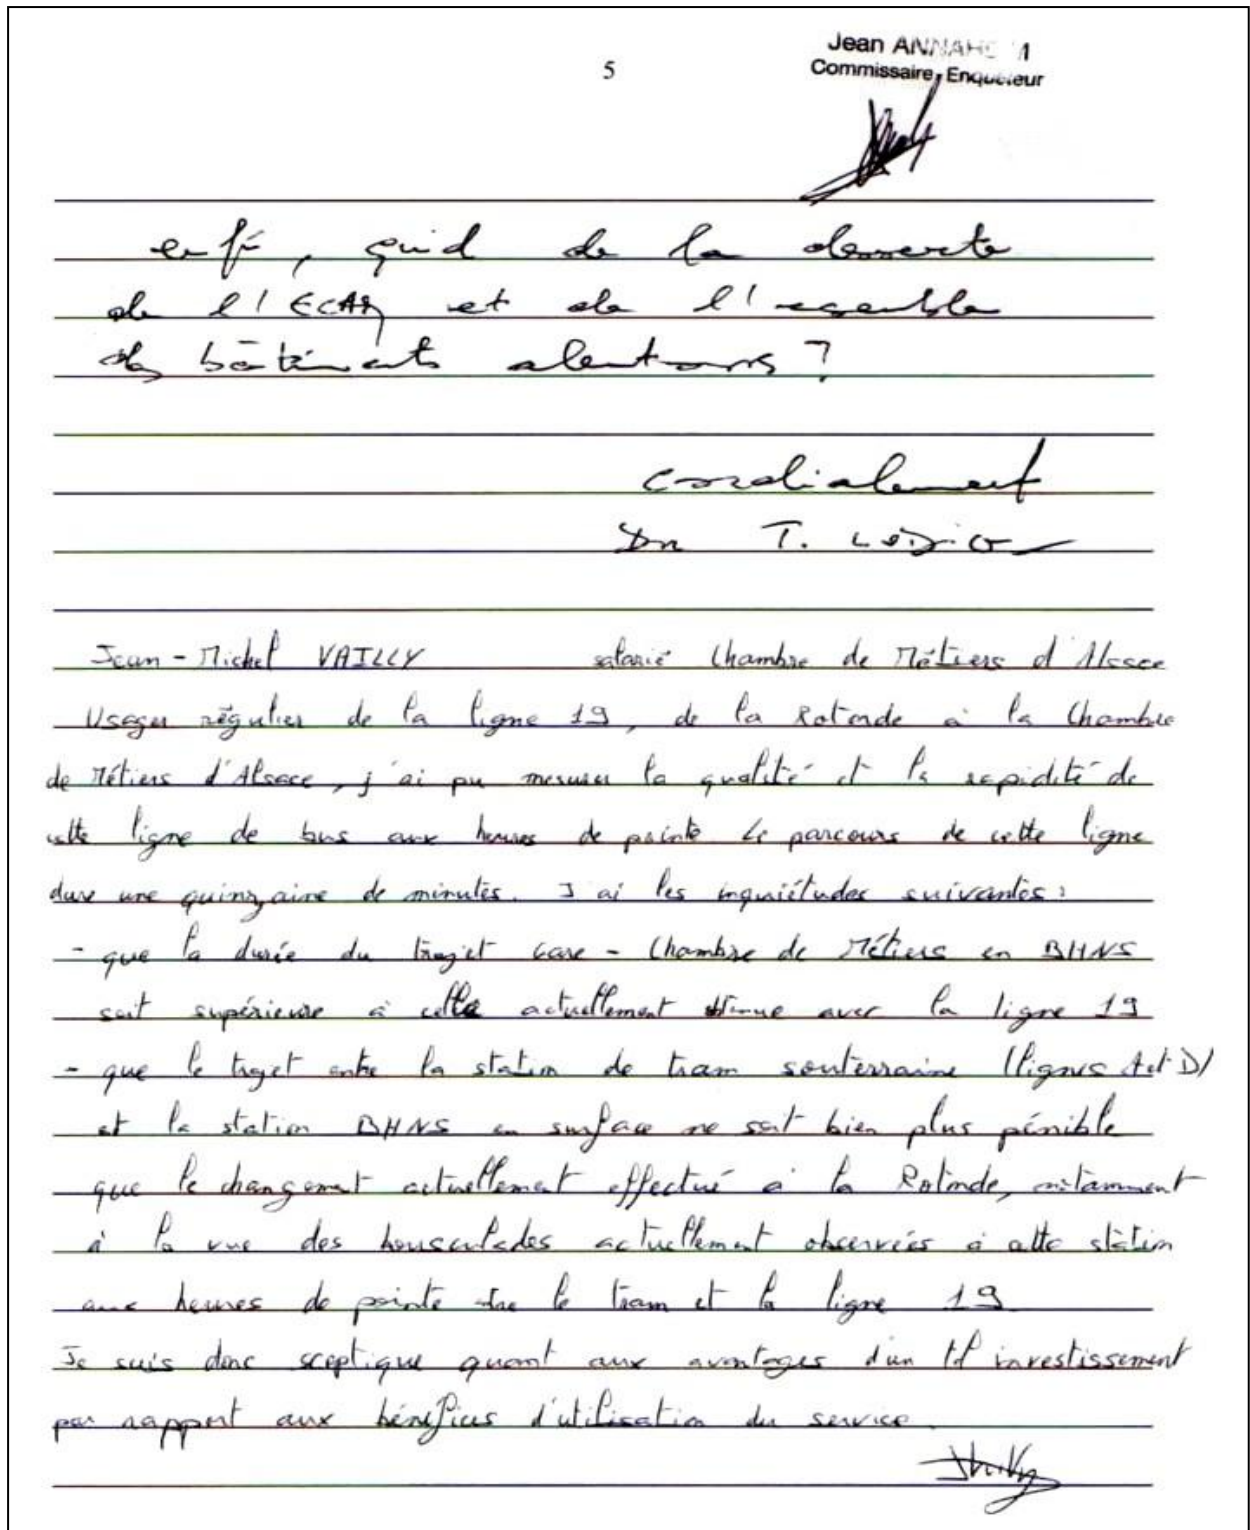 5
Jean ANNAHEIM
Commissaire Enquêteur
enfin, quid de la desserte
de l'ECAM et de l'ensemble
des bâtiments alentours ?
Cordialement
Dr T.
Jean-Michel VAILLY salarié Chambre de Métiers d'Alsace
Usager régulier de la ligne 19, de la Rotonde à la Chambre
de Métiers d'Alsace, j'ai pu mesurer la qualité et la rapidité de
cette ligne de bus aux heures de pointe. Le parcours de cette ligne
dure une quinzaine de minutes. J'ai les inquiétudes suivantes :
- que la durée du trajet Gare - Chambre de Métiers en BHNS
soit supérieure à celle actuellement obtenue avec la ligne 19
- que le trajet entre la station de tram souterraine (lignes A et D)
et la station BHNS en surface ne soit bien plus pénible
que le changement actuellement effectué à la Rotonde, notamment
à la vue des bousculades actuellement observées à cette station
aux heures de pointe entre le tram et la ligne 19
Je suis donc sceptique quant aux avantages d'un tel investissement
par rapport aux bénéfices d'utilisation du service.